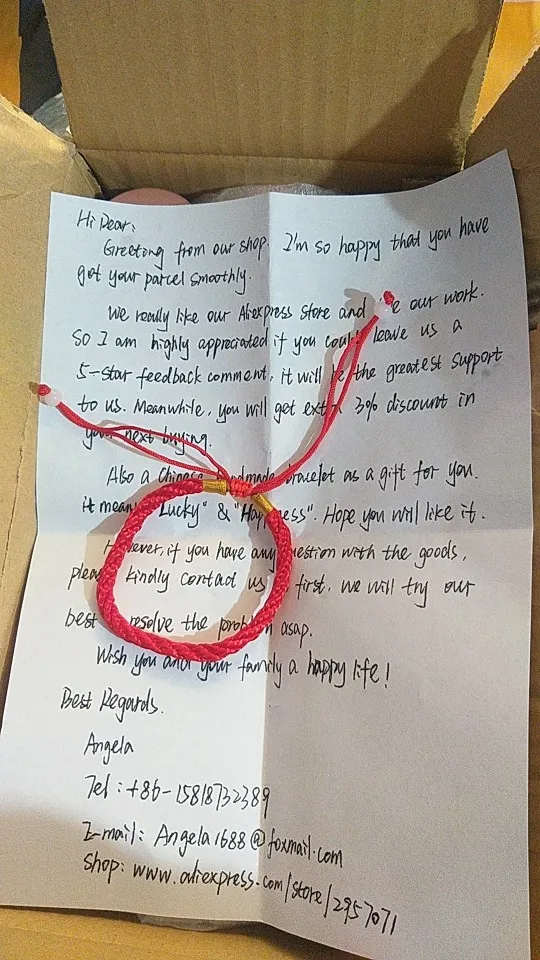 Hi Dear:
Greeting from our shop. I'm so happy that you have
got your parcel smoothly.
We really like our Aliexpress store and our work.
So I am highly appreciated if you could leave us a
5-star feedback comment, it will be the greatest support
to us. Meanwhile, you will get extra 3% discount in
your next buying.
Also a Chinese handmade bracelet as a gift for you.
it means "Lucky" & "Happiness". Hope you will like it.
However, if you have any question with the goods,
please kindly contact us first. we will try our
best resolve the problem asap.
Wish you and your family a happy life!
Best Regards.
Angela
Tel: +86-15818732389
E-mail: Angela1688@foxmail.com
Shop: www.aliexpress.com/store/2957071